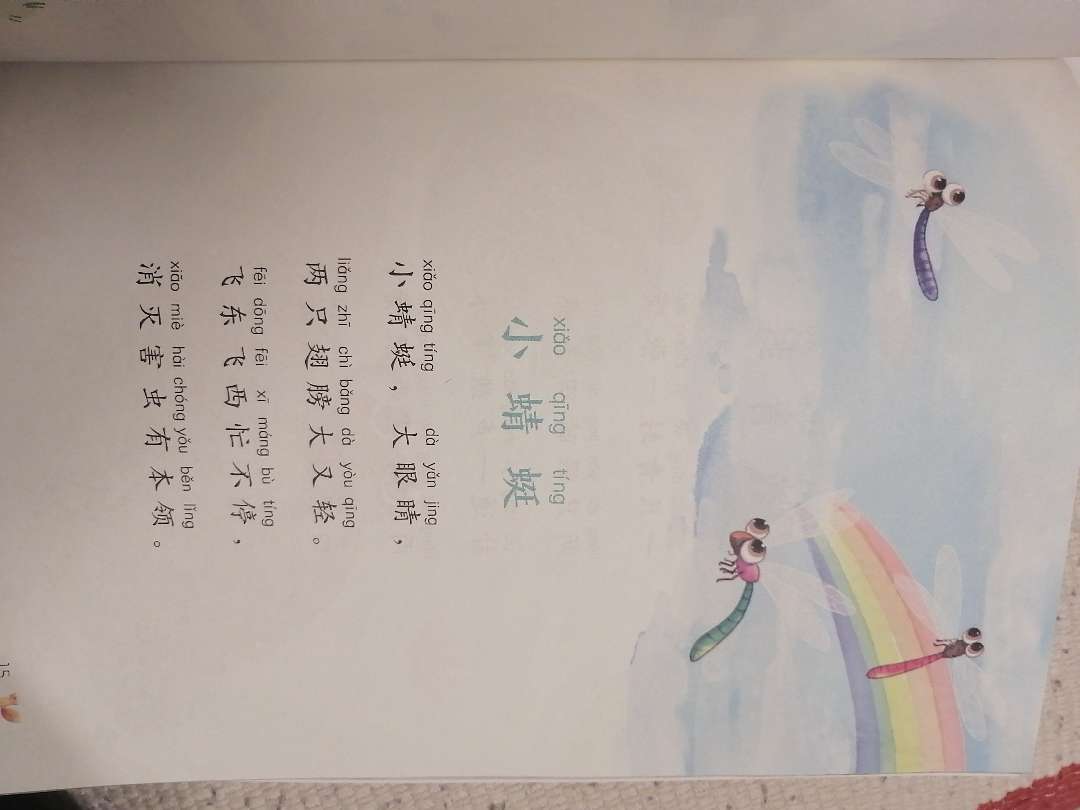 xiǎo qīng tíng
小蜻蜓
xiǎo qīng tíng dà yǎn jing
小蜻蜓，大眼睛，
liǎng zhī chì bǎng dà yòu qīng
两只翅膀大又轻。
fēi dōng fēi xī máng bù tíng
飞东飞西忙不停，
xiāo miè hài chóng yǒu běn lǐng
消灭害虫有本领。
15